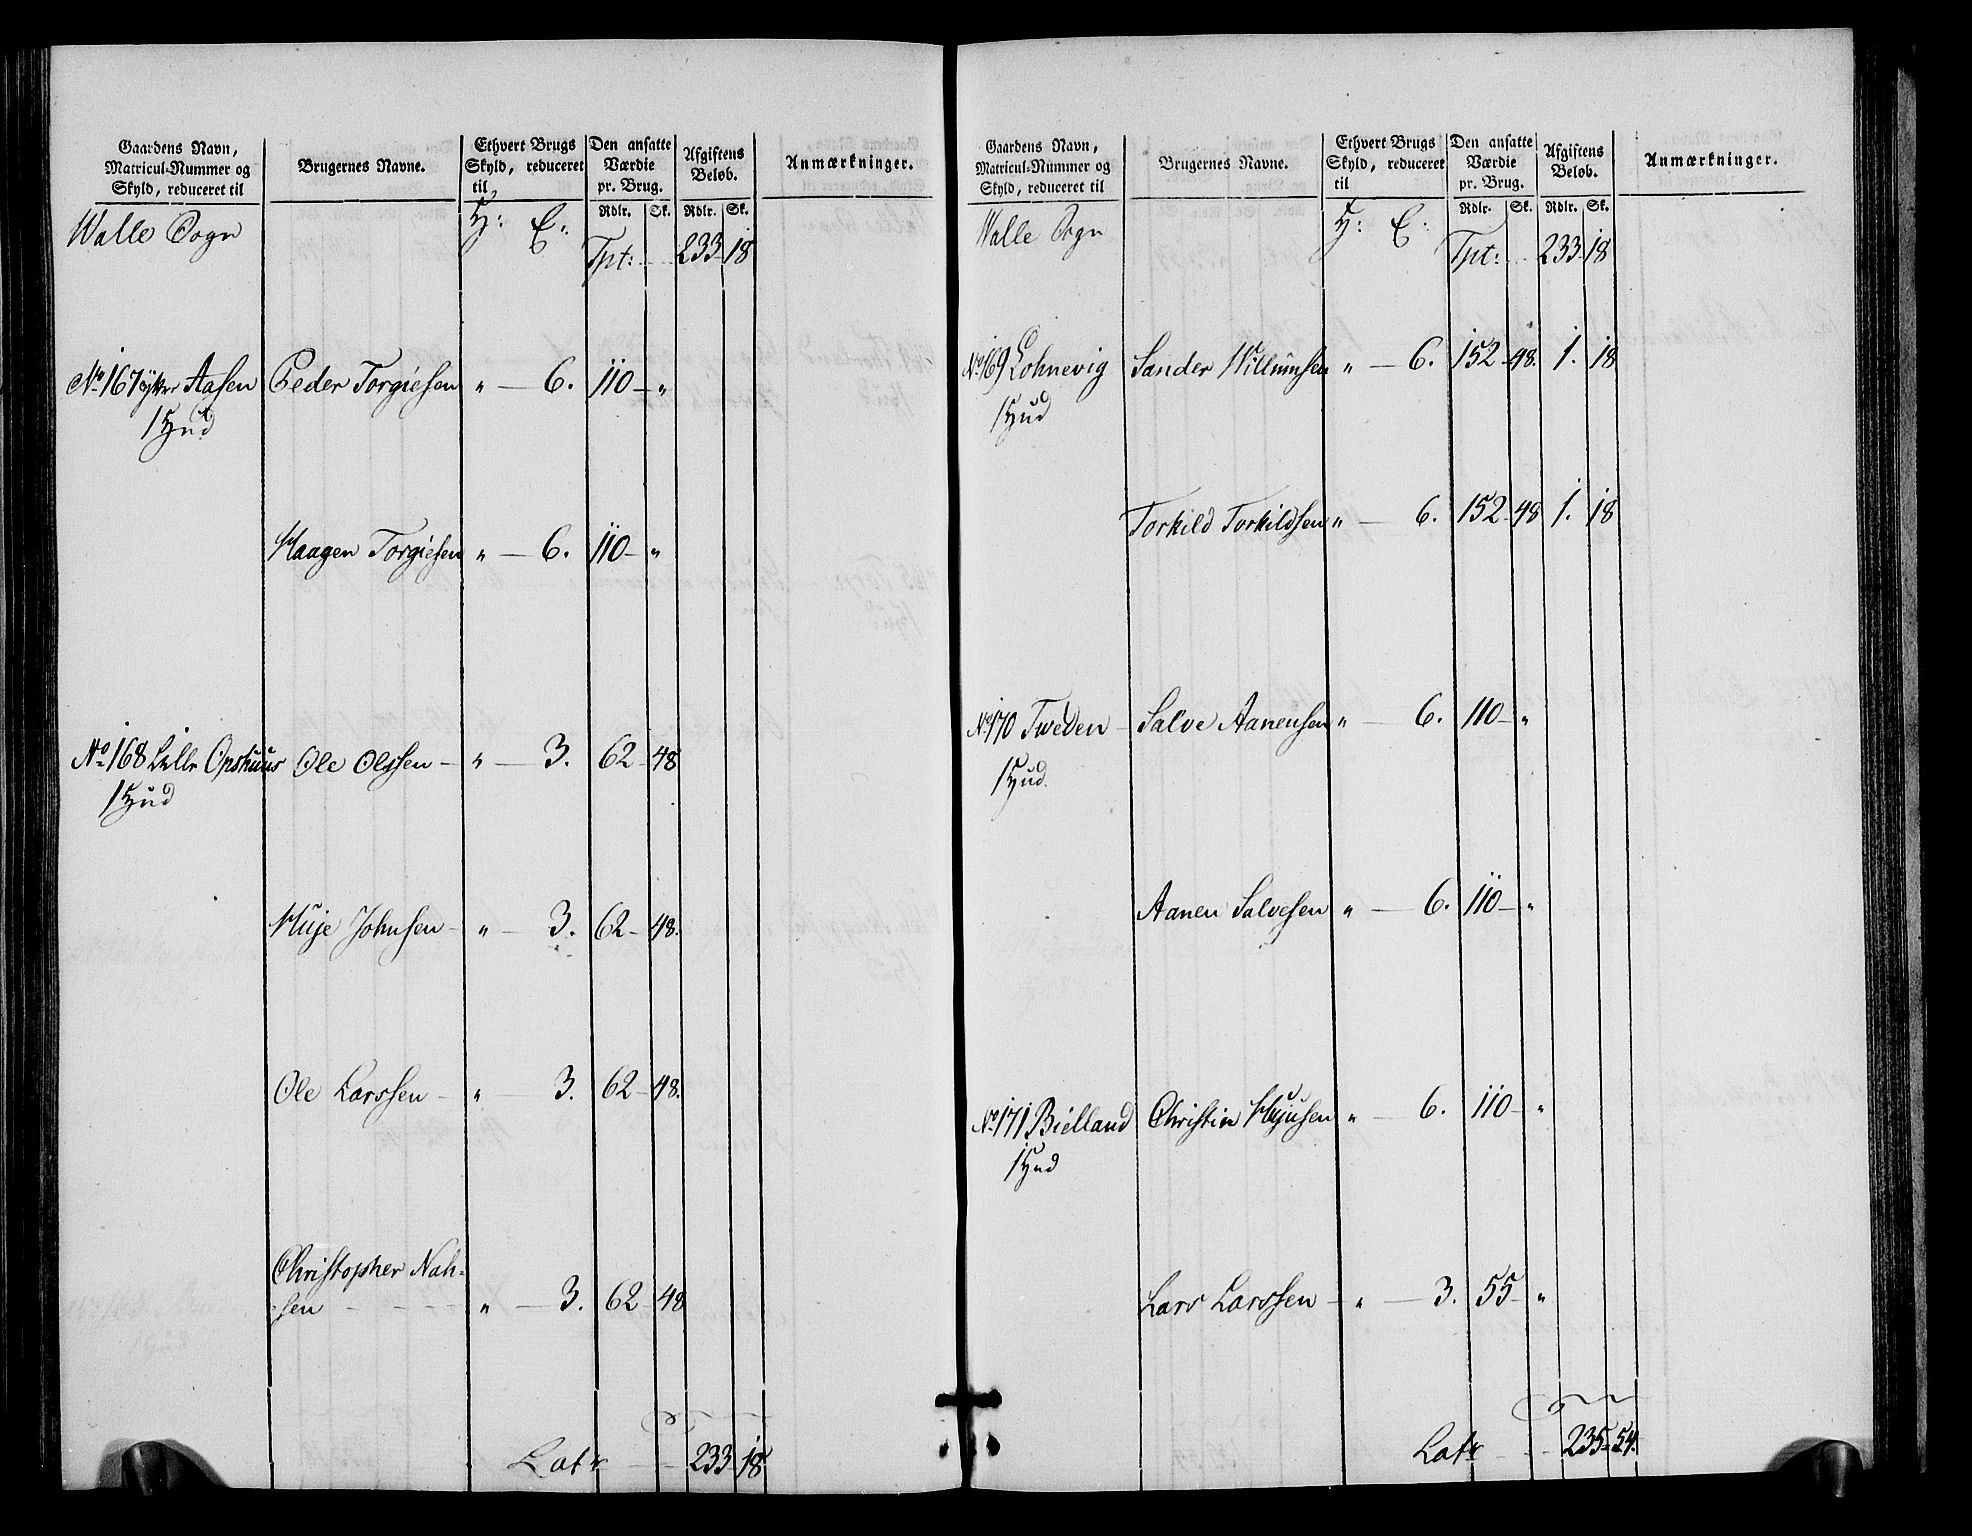 Gaardens Navn, Matricul-Nummer og Skyld, reduceret til
Brugernes Navne.
Ethvert Brugs Skyld, reduceret til
Den ansatte Værdie pr. Brug.
Afgiftens Beløb.
Anmærkninger.
Rdlr. Sk. Rdlr. Sk.
Walle Sogn H: E:
Tpt: 233 18
No 167 Aasen Peder Torgiesen " 6. 110 "
1 Hud
Haagen Torgiesen " 6. 110 "
No 168 Lille Opshuus Ole Olssen " 3. 62 48
1 Hud
Huje Johnsen " 3. 62 48.
Ole Larssen " 3. 62 48.
Christopher Nah-
sen " 3. 62 48
Latr 233 18
Gaardens Navn, Matricul-Nummer og Skyld, reduceret til
Brugernes Navne.
Ethvert Brugs Skyld, reduceret til
Den ansatte Værdie pr. Brug.
Afgiftens Beløb.
Anmærkninger.
Rdlr. Sk. Rdlr. Sk.
Walle Sogn H: E:
Tpt: 233 18
No 169 Lohnevig Sander Willumsen " 6. 152 48. 1. 18
1 Hud
Torkild Torkildsen " 6. 152 48 1. 18
No 170 Tweden Salve Aanensen " 6. 110 "
1 Hud.
Aanen Salvesen " 6. 110 "
No 171 Bielland Christin Hujusen " 6. 110 "
1 Hud
Lars Larssen " 3. 55 "
Latr 235 54.